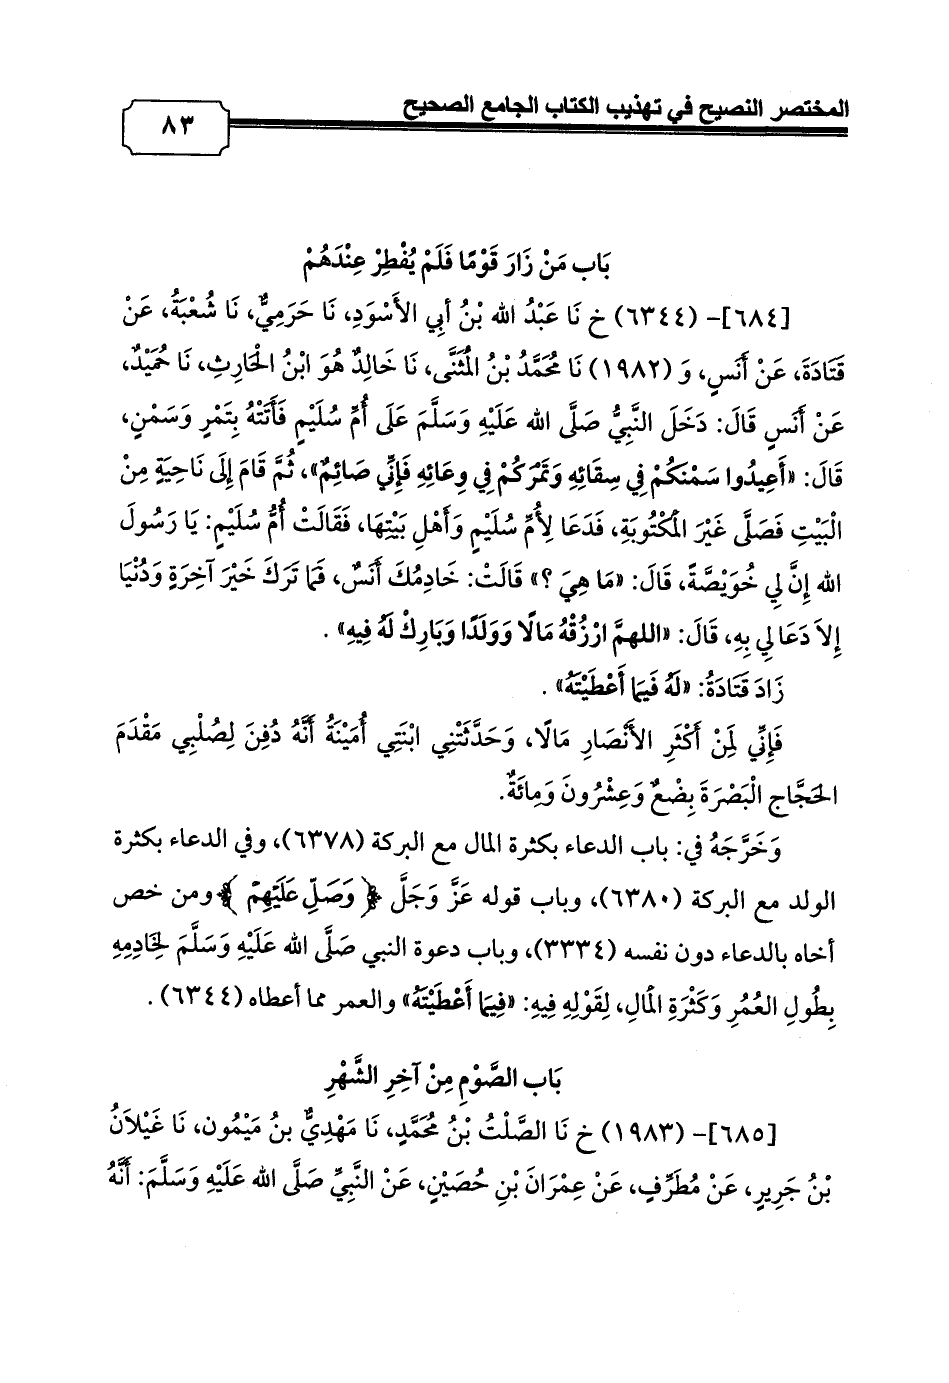 المختصر النصيح في تهذيب الكتاب الجامع الصحيح
٨٣
بَاب مَنْ زَارَ قَوْمًا فَلَمْ يُفْطِرْ عِنْدَهُمْ
[٦٨٤]- (٦٣٤٤) خ نَا عَبْدُ الله بْنُ أبِي الأَسْوَدِ، نَا حَرَمِيٌّ، نَا شُعْبَةُ، عَنْ
قَتَادَةَ، عَنْ أَنَسٍ، وَ (١٩٨٢) نَا مُحَمَّدُ بْنُ الْمُثَنَّى، نَا خَالِدٌ هُوَ ابْنُ الْحَارِثِ، نَا حُمَيْدٌ،
عَنْ أَنَسٍ قَالَ: دَخَلَ النَّبِيُّ صَلَّى الله عَلَيْهِ وَسَلَّمَ عَلَى أُمِّ سُلَيْمٍ فَأَتَتْهُ بِتَمْرٍ وَسَمْنٍ،
قَالَ: «أَعِيدُوا سَمْنَكُمْ فِي سِقَائِهِ وَتَمْرَكُمْ فِي وِعَائِهِ فَإِنِّي صَائِمٌ»، ثُمَّ قَامَ إِلَى نَاحِيَةٍ مِنْ
الْبَيْتِ فَصَلَّى غَيْرَ الْمَكْتُوبَةِ، فَدَعَا لِأُمِّ سُلَيْمٍ وَأَهْلِ بَيْتِهَا، فَقَالَتْ أُمُّ سُلَيْمٍ: يَا رَسُولَ
الله إِنَّ لِي خُوَيْصَّةً، قَالَ: «مَا هِيَ ؟» قَالَتْ: خَادِمُكَ أَنَسٌ، فَمَا تَرَكَ خَيْرَ آخِرَةٍ وَدُنْيَا
إِلاَ دَعَا لِي بِهِ، قَالَ: «اللهمَّ ارْزُقْهُ مَالًا وَوَلَدًا وَبَارِكْ لَهُ فِيهِ» .
زَادَ قَتَادَةُ: «لَهُ فَيمَا أَعْطَيْتَهُ» .
فَإِنِّي لَمِنْ أَكْثَرِ الأَنْصَارِ مَالًا، وَحَدَّثَتْنِي ابْنَتِي أُمَيْنَةُ أَنَّهُ دُفِنَ لِصُلْبِي مَقْدَمَ
الحَجَّاجِ الْبَصْرَةَ بِضْعٌ وَعِشْرُونَ وَمِائَةٌ.
وَخَرَّجَهُ في: باب الدعاء بكثرة المال مع البركة (٦٣٧٨)، وفي الدعاء بكثرة
الولد مع البركة (٦٣٨٠)، وباب قوله عَزَّ وَجَلَّ ﴿ وَصَلِّ عَلَيْهِمْ ﴾ ومن خص
أخاه بالدعاء دون نفسه (٣٣٣٤)، وباب دعوة النبي صَلَّى الله عَلَيْهِ وَسَلَّمَ لِخَادِمِهِ
بِطُولِ العُمُرِ وَكَثْرَةِ الْمَالِ، لِقَوْلِهِ فِيهِ: «فِيمَا أَعْطَيْتَهُ» والعمر مما أعطاه (٦٣٤٤) .
بَاب الصَّوْمِ مِنْ آخِرِ الشَّهْرِ
[٦٨٥]- (١٩٨٣) خ نَا الصَّلْتُ بْنُ مُحَمَّدٍ، نَا مَهْدِيُّ بنُ مَيْمُون، نَا غَيْلاَنُ
بْنُ جَرِيرٍ، عَنْ مُطَرِّفٍ، عَنْ عِمْرَانَ بْنِ حُصَيْنٍ، عَنْ النَّبِيِّ صَلَّى الله عَلَيْهِ وَسَلَّمَ: أَنَّهُ